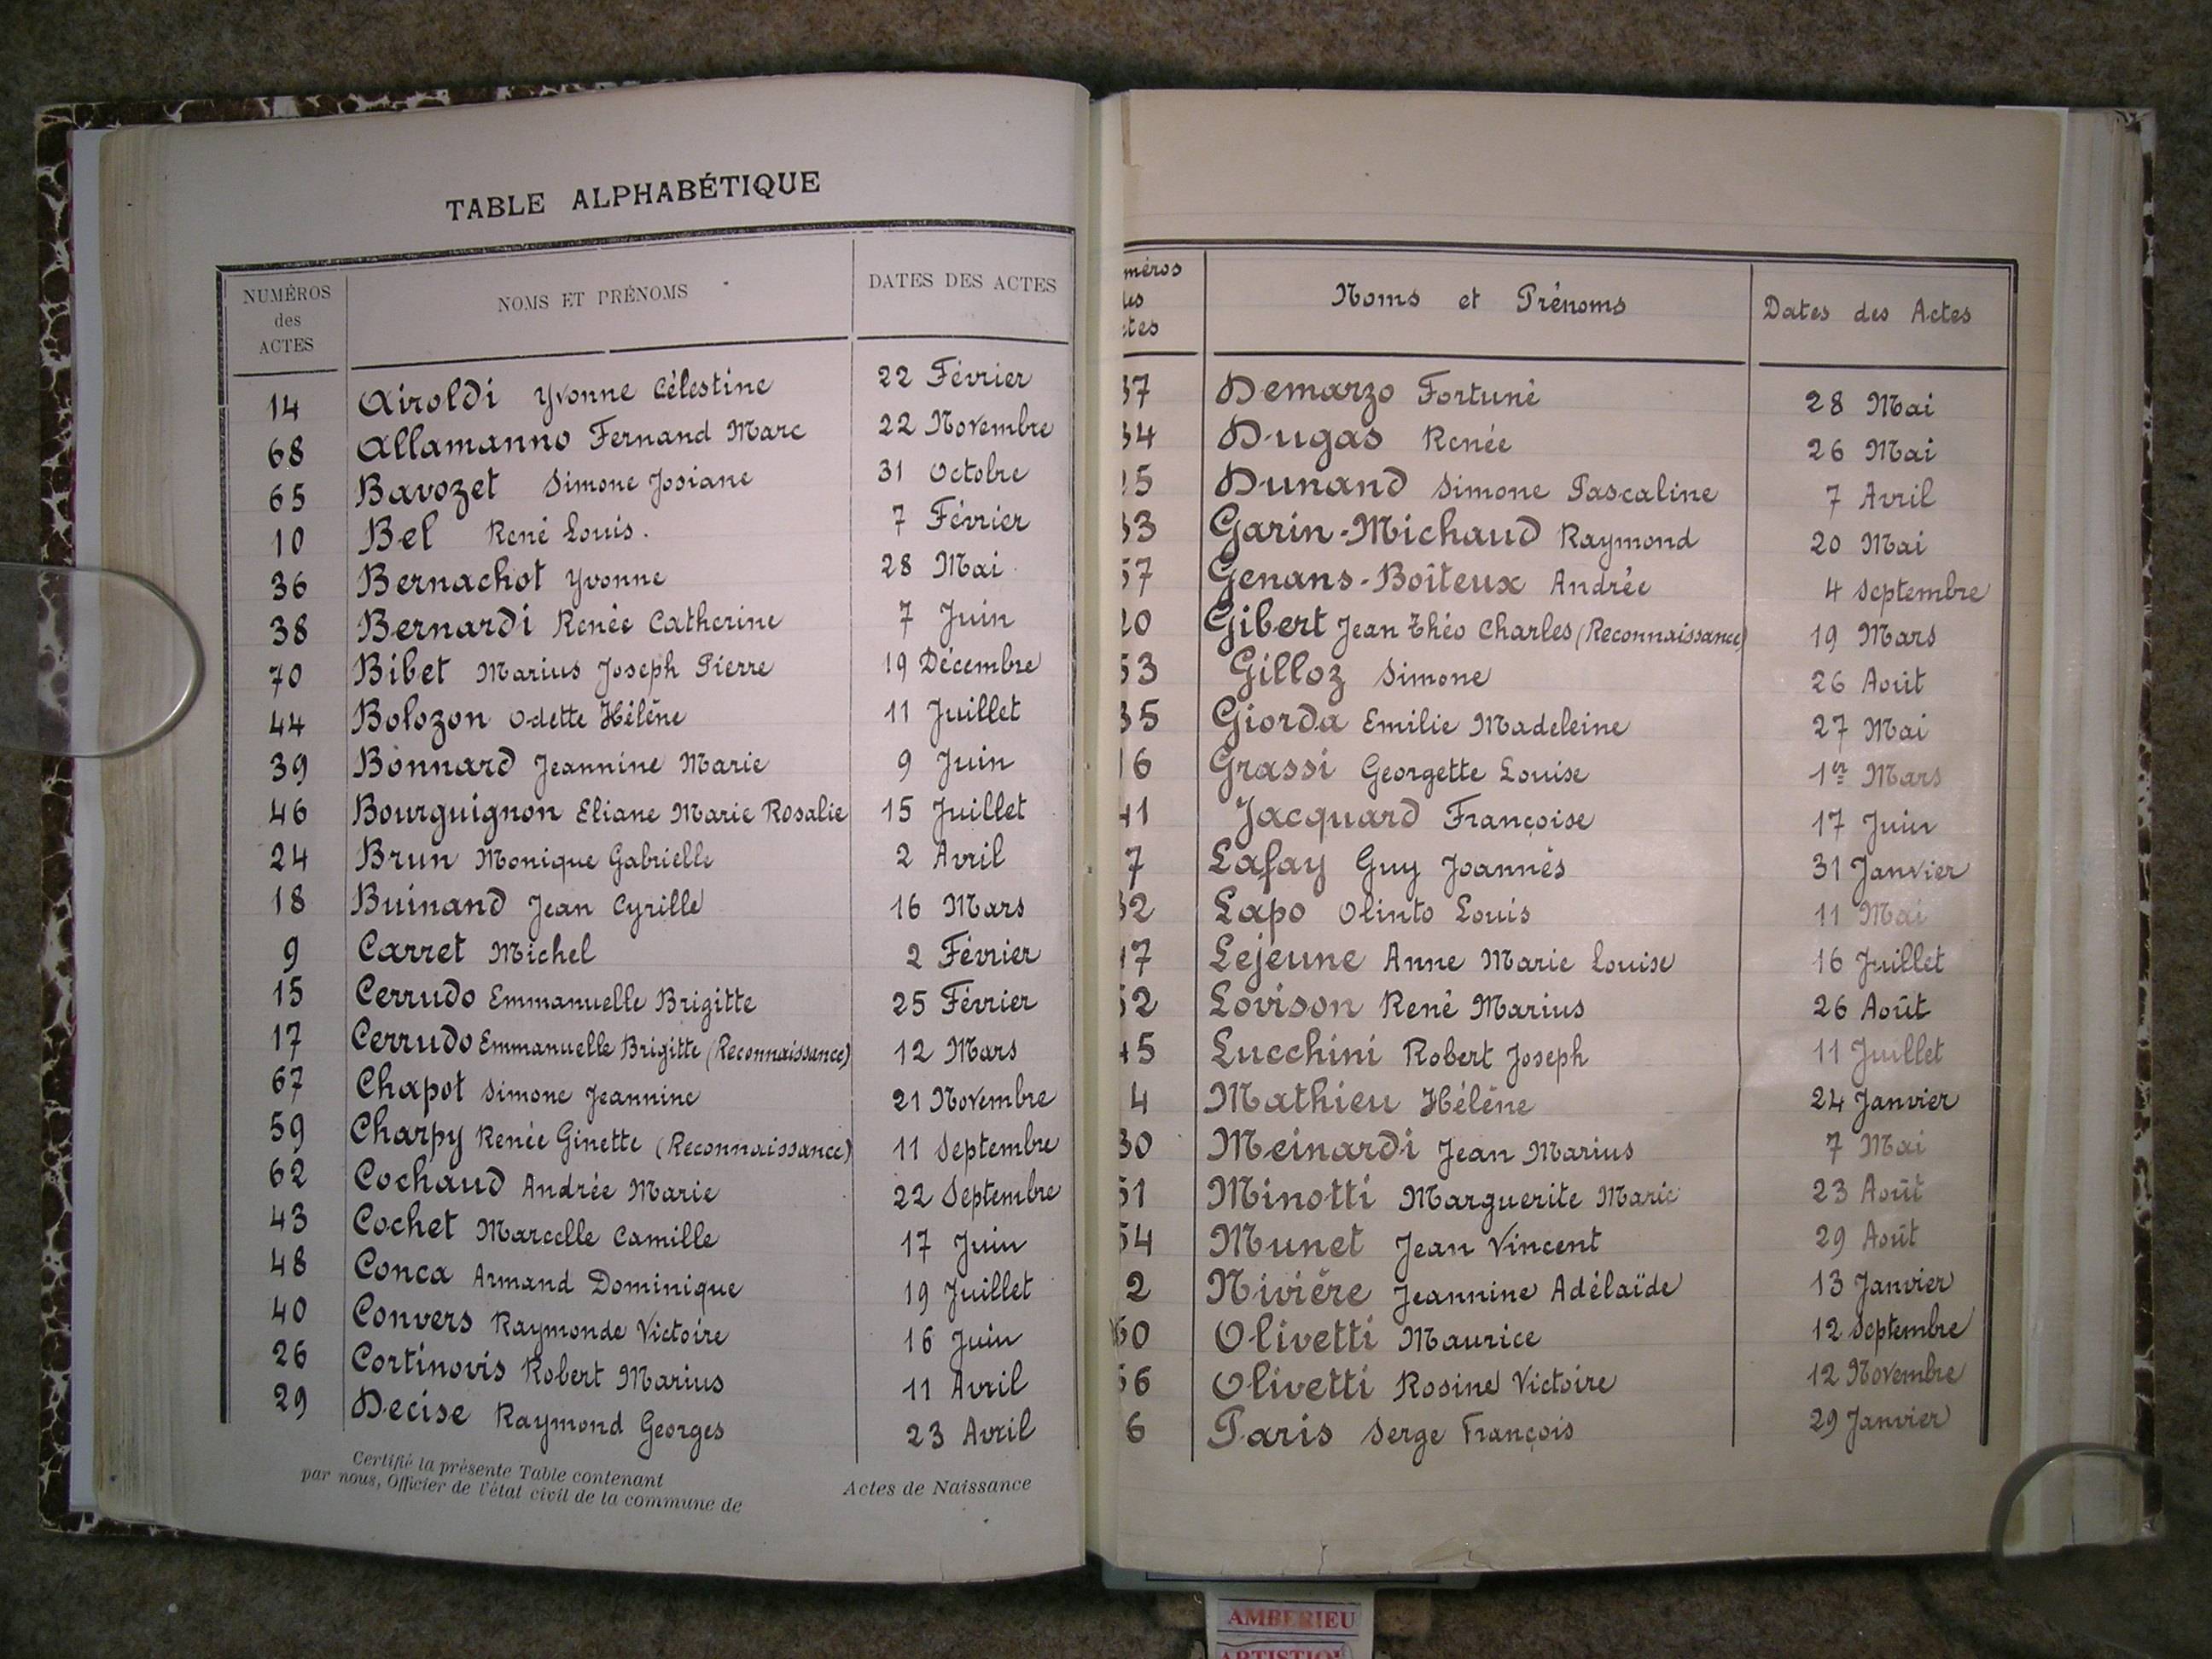 TABLE ALPHABÉTIQUE
NUMÉROS des ACTES NOMS ET PRÉNOMS DATES DES ACTES
14 Airoldi Yvonne Célestine 22 Février
68 Allamanno Fernand Marc 22 Novembre
65 Bavozet Simone Josiane 31 Octobre
10 Bel René Louis. 7 Février
36 Bernachot Yvonne 28 Mai
38 Bernardi Renée Catherine 7 Juin
70 Bibet Marius Joseph Pierre 19 Décembre
44 Bolozon Odette Hélène 11 Juillet
39 Bonnard Jeannine Marie 9 Juin
46 Bourguignon Eliane Marie Rosalie 15 Juillet
24 Brun Monique Gabrielle 2 Avril
18 Buinand Jean Cyrille 16 Mars
9 Carret Michel 2 Février
15 Cerrudo Emmanuelle Brigitte 25 Février
17 Cerrudo Emmanuelle Brigitte (Reconnaissance) 12 Mars
67 Chapot Simone Jeannine 21 Novembre
59 Charpy Renée Ginette (Reconnaissance) 11 Septembre
62 Cochaud Andrée Marie 22 Septembre
43 Cochet Marcelle Camille 17 Juin
48 Conca Armand Dominique 19 Juillet
40 Convers Raymonde Victoire 16 Juin
26 Cortinovis Robert Marius 11 Avril
29 Decise Raymond Georges 23 Avril
Certifié la présente Table contenant Actes de Naissance
par nous, Officier de l'état civil de la commune de
méros des ctes Noms et Prénoms Dates des Actes
37 Demarzo Fortuné 28 Mai
34 Dugas Renée 26 Mai
25 Dunand Simone Pascaline 7 Avril
33 Garin-Michaud Raymond 20 Mai
57 Genans-Boiteux Andrée 4 Septembre
20 Gibert Jean Théo Charles (Reconnaissance) 19 Mars
53 Gilloz Simone 26 Août
35 Giorda Emilie Madeleine 27 Mai
16 Grassi Georgette Louise 1er Mars
41 Jacquard Françoise 17 Juin
7 Lafay Guy Joannès 31 Janvier
32 Lapo Olinto Louis 11 Mai
47 Lejeune Anne Marie Louise 16 Juillet
52 Lovison René Marius 26 Août
45 Lucchini Robert Joseph 11 Juillet
4 Mathieu Hélène 24 Janvier
30 Meinardi Jean Marius 7 Mai
51 Minotti Marguerite Marie 23 Août
54 Munet Jean Vincent 29 Août
2 Nivière Jeannine Adélaïde 13 Janvier
60 Olivetti Maurice 12 Septembre
66 Olivetti Rosine Victoire 12 Novembre
6 Paris Serge François 29 Janvier
AMBERIEU